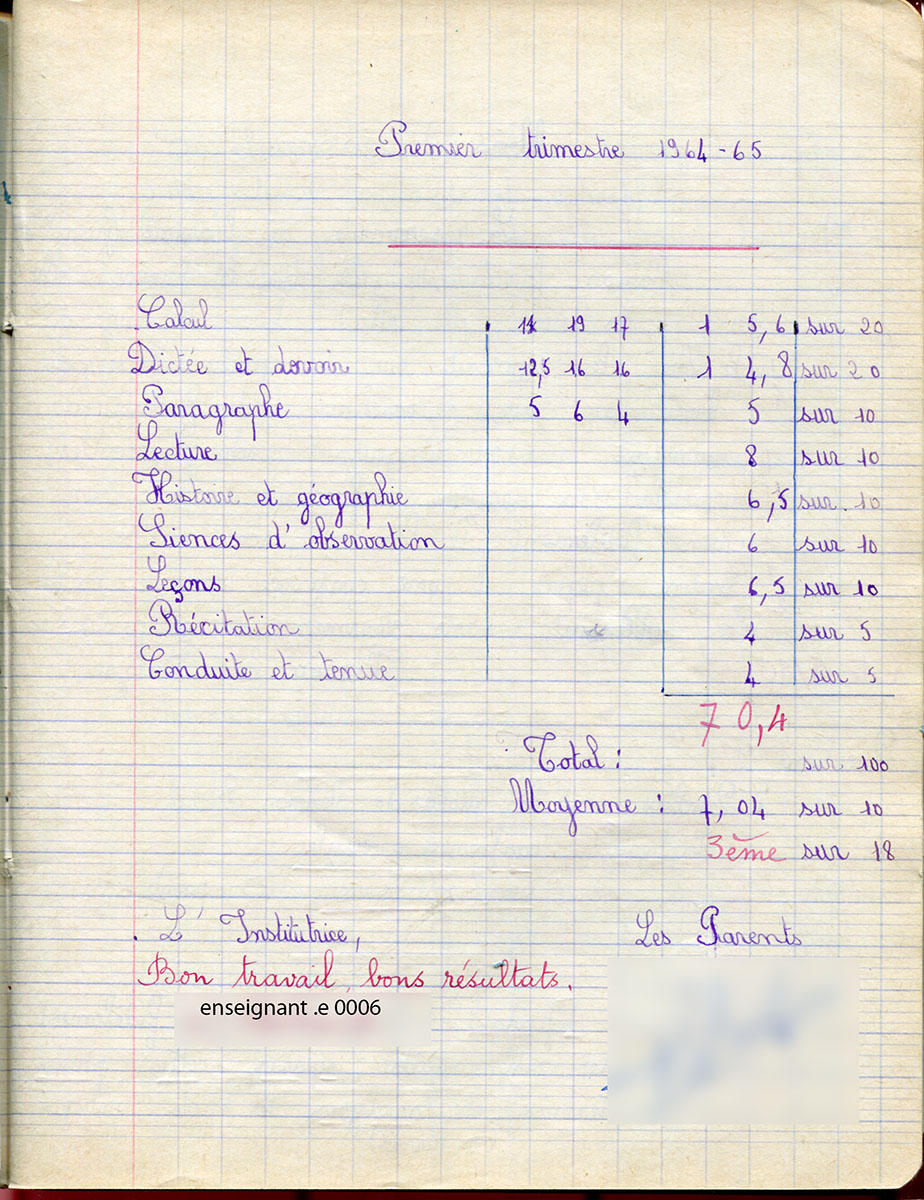 Premier trimestre 1964-65
Calcul 11 19 17 15,6 sur 20
Dictée et devoir 12,5 16 16 14,8 sur 20
Paragraphe 5 6 4 5 sur 10
Lecture 8 sur 10
Histoire et géographie 6,5 sur 10
Siences d'observation 6 sur 10
Leçons 6,5 sur 10
Récitation 4 sur 5
Conduite et tenue 4 sur 5
70,4
Total : sur 100
Moyenne : 7,04 sur 10
3ème sur 18
L'Institutrice, Les Parents
Bon travail, bons résultats.
enseignant .e 0006